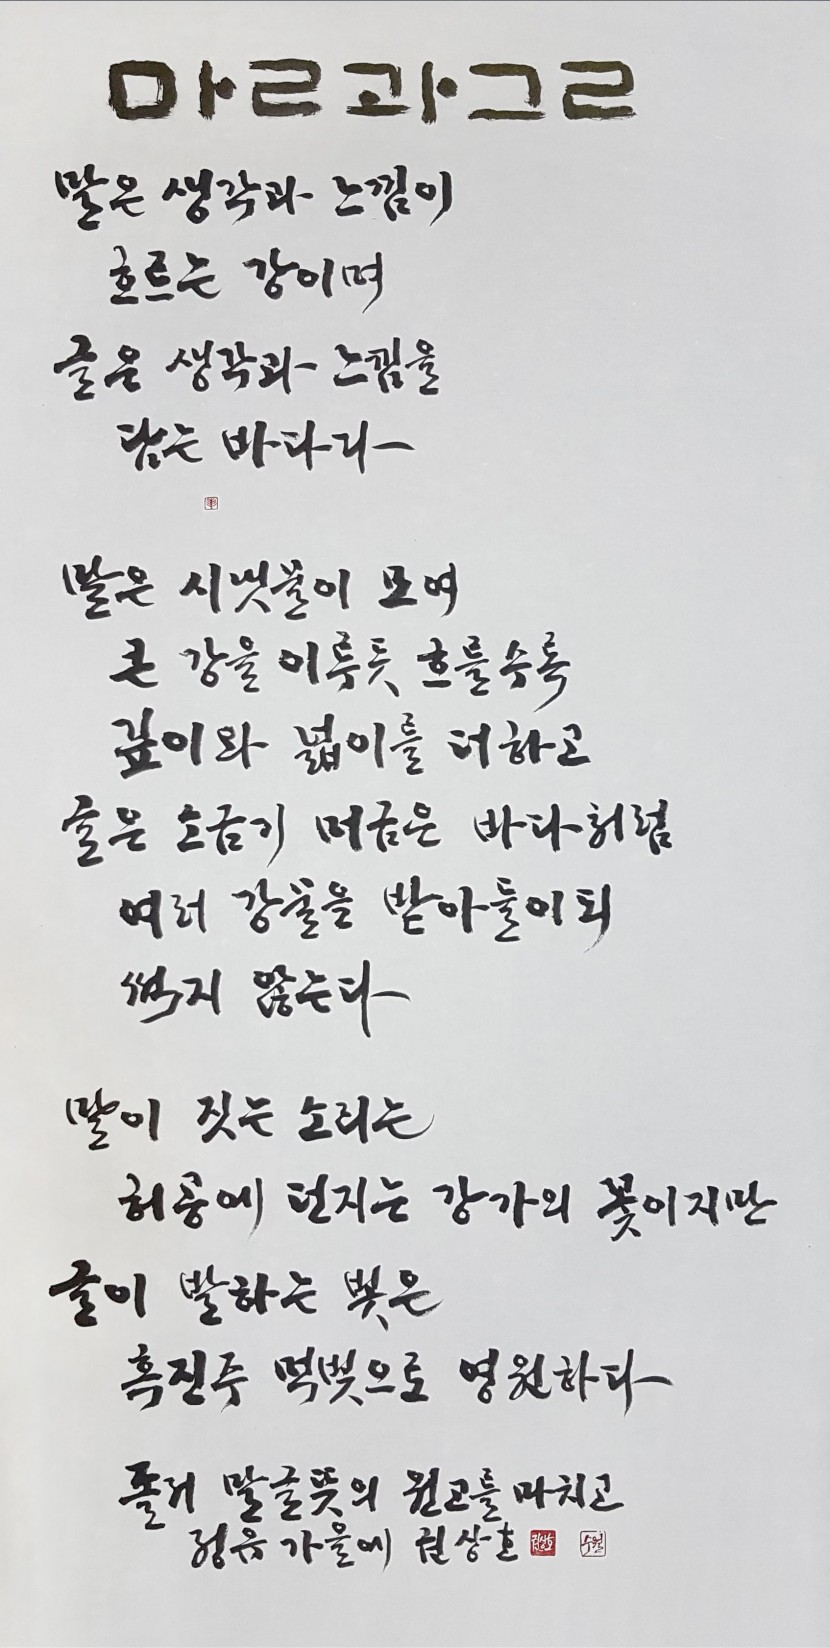 말과글
말은 생각과 느낌이
흐르는 강이며
글은 생각과 느낌을
담는 바다다
말은 시냇물이 모여
큰 강을 이루듯 흐를수록
깊이와 넓이를 더하고
글은 소금기 머금은 바다처럼
여러 강물을 받아들이되
썩지 않는다
말이 짓는 소리는
허공에 던지는 강가의 꽃이지만
글이 발하는 빛은
흑진주 먹빛으로 영원하다
졸저 말글뜻의 원고를 마치고
정유 가을에 권상호 권상호 수월